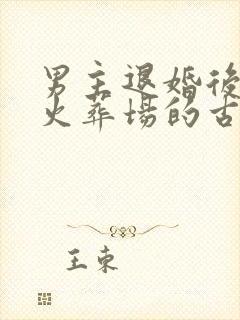 男主退婚後
火葬場的古
王束